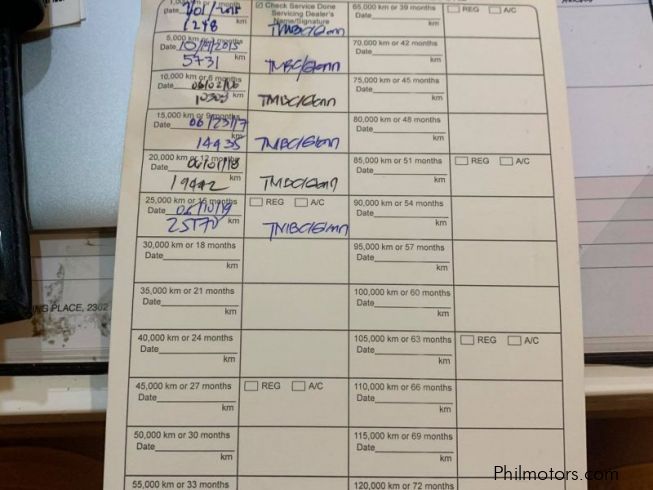 ☑ Check Service Done
Servicing Dealer's
Name/Signature
Date
1248 km
TMBC/Glenn
5,000 km
Date 10/15/2015
5731 km
TMBC/Glenn
10,000 km or 6 months
Date 06/02/16
10303 km
TMBC/Glenn
15,000 km or 9 months
Date 06/23/17
14435 km
TMBC/Glenn
20,000 km or 12 months
Date 06/01/18
19442 km
TMBC/Glenn
25,000 km or 15 months
Date 06/10/19
25170 km
REG A/C
TMBC/Glenn
30,000 km or 18 months
Date
km
35,000 km or 21 months
Date
km
40,000 km or 24 months
Date
km
45,000 km or 27 months
Date
km
REG A/C
50,000 km or 30 months
Date
km
55,000 km or 33 months
65,000 km or 39 months
Date
km
REG A/C
70,000 km or 42 months
Date
km
75,000 km or 45 months
Date
km
80,000 km or 48 months
Date
km
85,000 km or 51 months
Date
km
REG A/C
90,000 km or 54 months
Date
km
95,000 km or 57 months
Date
km
100,000 km or 60 months
Date
km
105,000 km or 63 months
Date
km
REG A/C
110,000 km or 66 months
Date
km
115,000 km or 69 months
Date
km
120,000 km or 72 months
PLACE, 2302
Philmotors.com